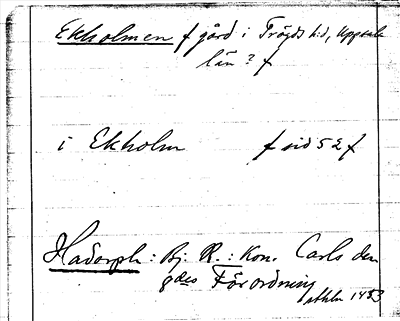 Ekholmen f gård i Trögds hd, Uppsala
län? f
i Ekholm f sid 52 f
Hadorph: Bj. R.: Kon. Carls den
8des Förordning